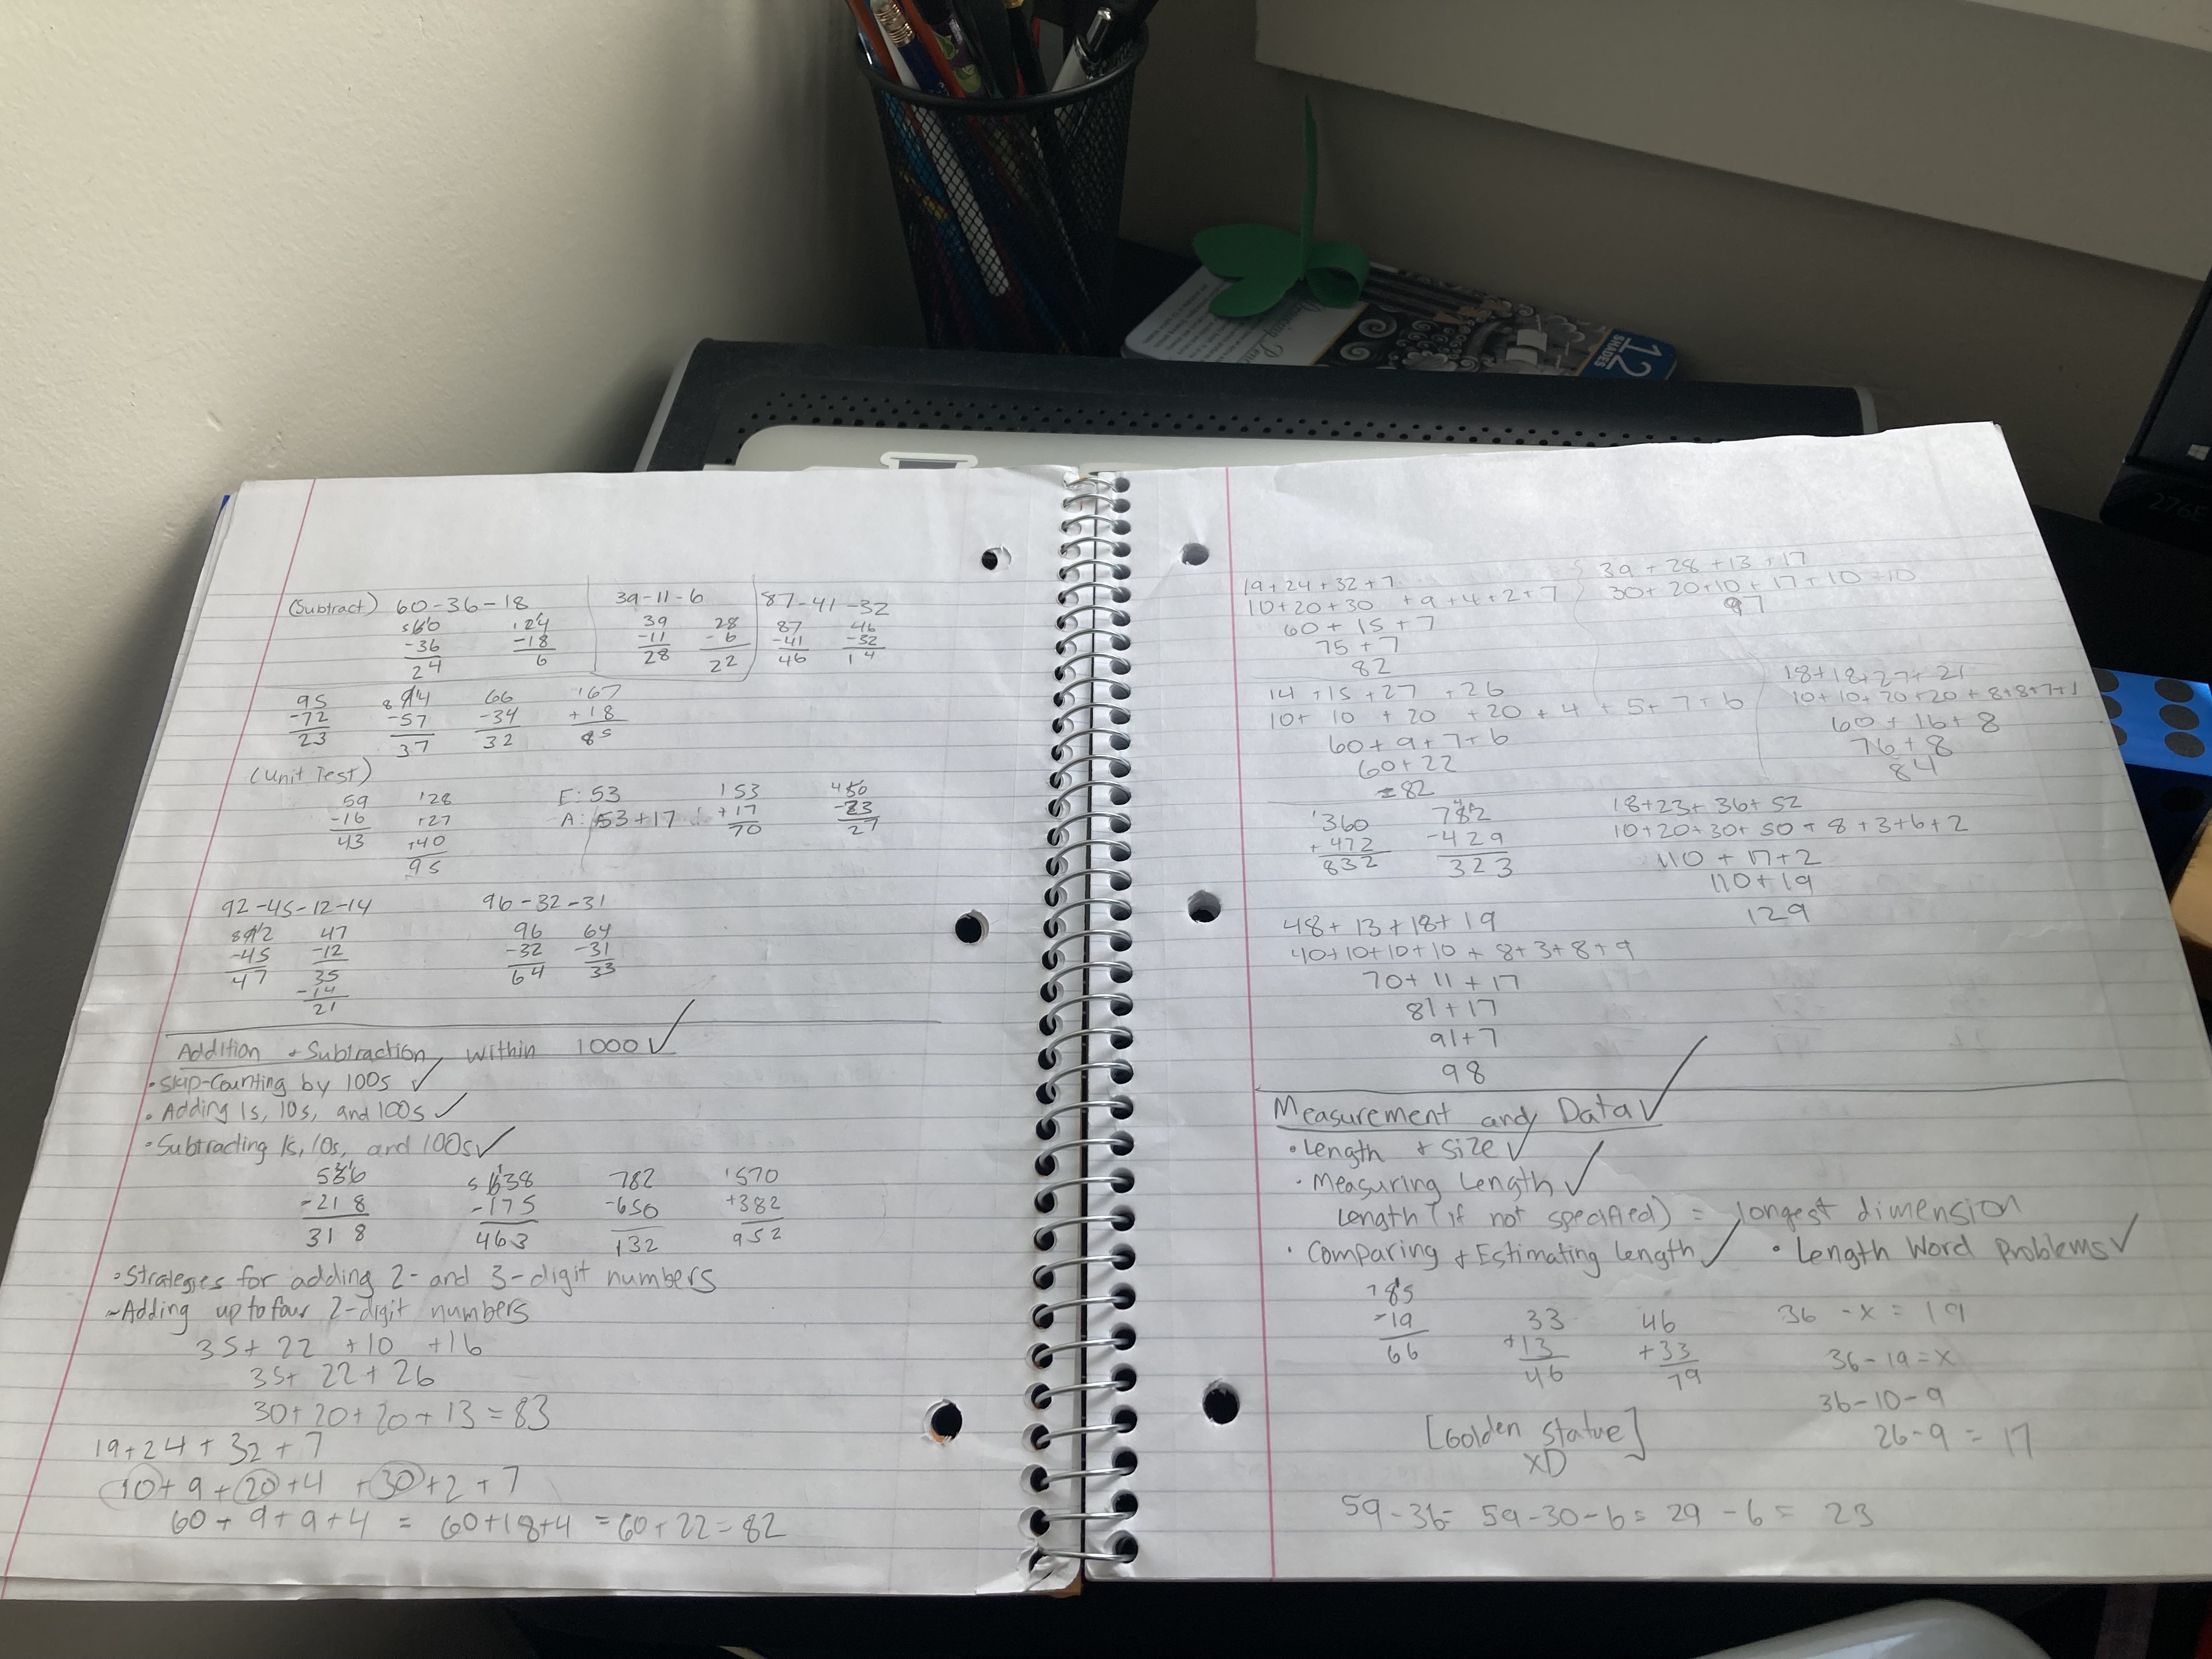 (Subtract) 60-36-18
39-11-6
87-41-32
60 24 39 28 87 46
-36 -18 -11 -6 -41 -32
24 6 28 22 46 14
95 94 66 67
-72 -57 -34 +18
23 37 32 85
(Unit Test)
59 28 E: 53 53 50
-16 +27 A: 53+17 +17 -23
43 +40 70 27
95
92-45-12-14 96-32-31
92 47 96 64
-45 -12 -32 -31
47 35 64 33
-14
21
Addition + Subtraction within 1000 ✓
• Skip-Counting by 100s ✓
• Adding 1s, 10s, and 100s ✓
• Subtracting 1s, 10s, and 100s ✓
536 638 782 570
-218 -175 -650 +382
318 463 132 952
• Strategies for adding 2- and 3-digit numbers
~ Adding up to four 2-digit numbers
35+ 22 +10 +16
35+ 22 + 26
30+20+20+13=83
19+24+32+7
10+9+20+4 +30+2+7
60+9+9+4 = 60+18+4 =60+22=82
19+24+32+7
10+20+30 +9+4+2+7
60+15+7
75+7
82
39+28+13+17
30+20+10+17+10+10
97
14+15+27 +26
10+ 10 +20 +20+4+5+7+6
60+9+7+6
60+22
=82
18+18+27+21
10+10+20+20+8+8+7+1
60+16+8
76+8
84
360 782
+472 -429
832 323
18+23+36+52
10+20+30+50+8+3+6+2
110+17+2
110+19
129
48+13+18+19
40+10+10+10+8+3+8+9
70+11+17
81+17
91+7
98
Measurement and Data ✓
• Length + Size ✓
• Measuring Length ✓
Length (if not specified) = longest dimension
• Comparing + Estimating Length ✓ • Length Word Problems ✓
85 33 46
-19 +13 +33
66 46 79
36-x=19
36-19=x
36-10-9
26-9=17
[Golden Statue]
XD
59-36= 59-30-6= 29-6= 23
12
SHADES
276E